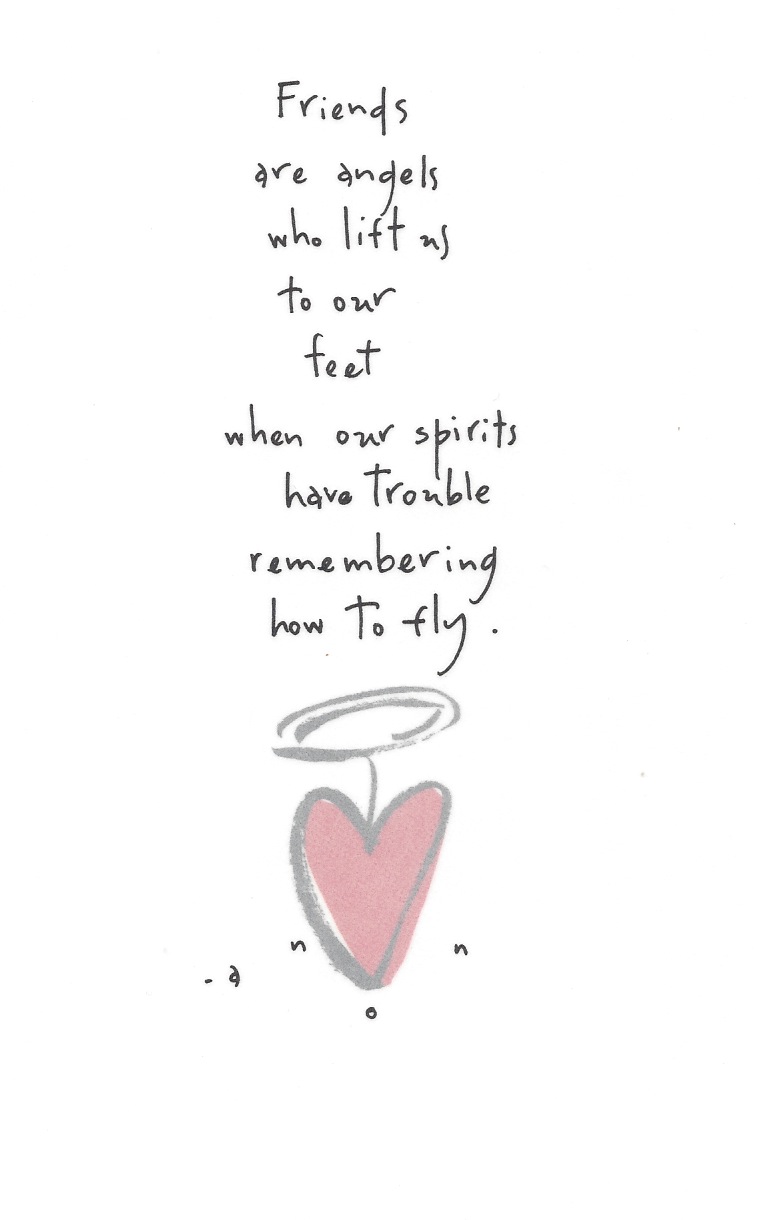 Friends
are angels
who lift us
to our
feet
when our spirits
have trouble
remembering
how to fly.
- a n o n